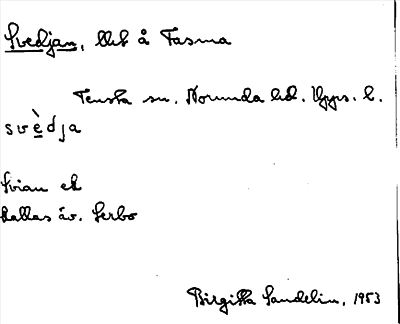 Svedjan, lkt å Tasma
Tensta sn. Norunda hd. Upps. l.
svèdja
Svian el
kallas äv. Serbo
Birgitta Sandelin, 1953